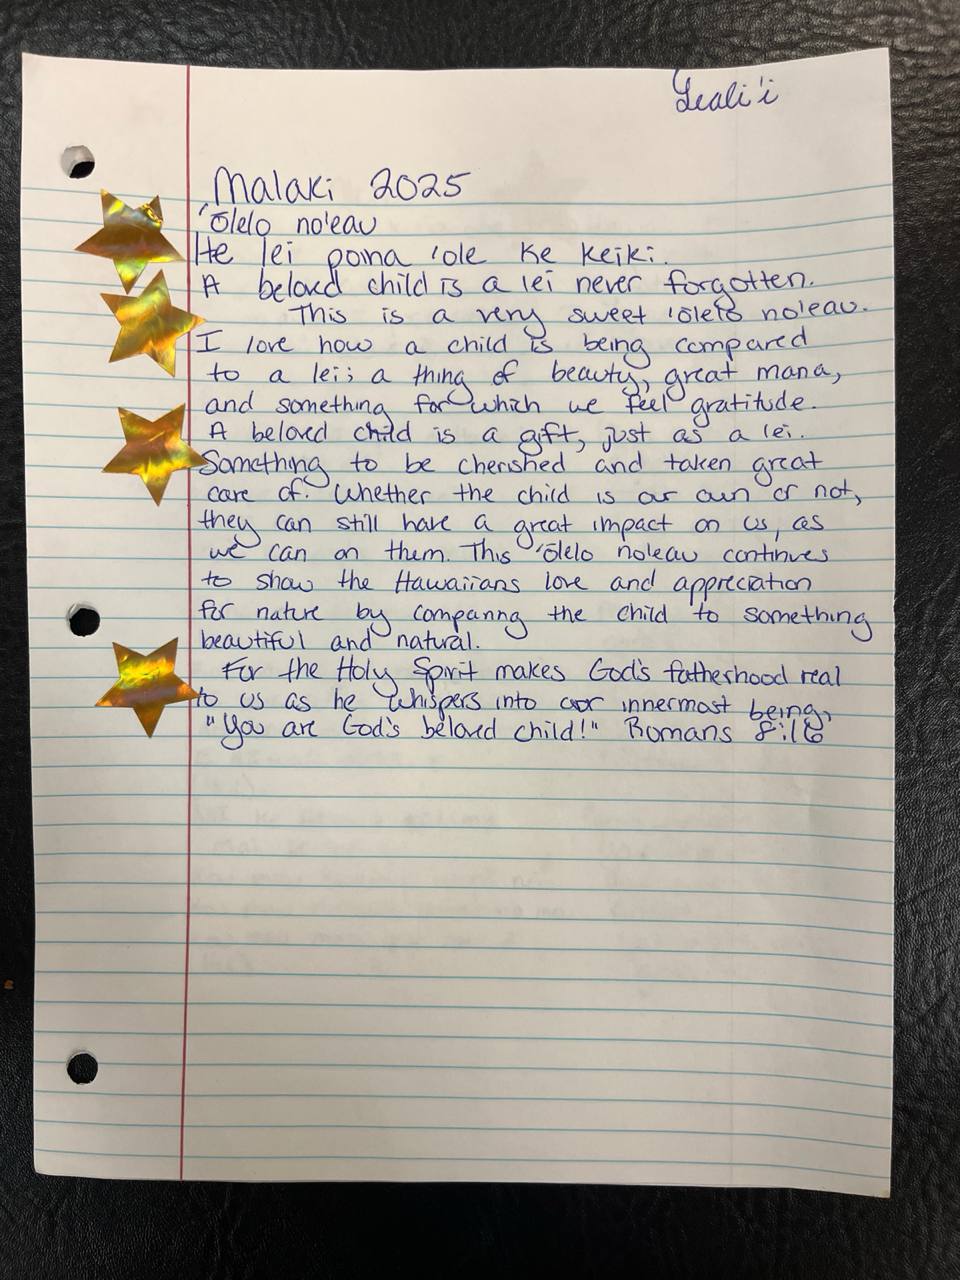 Leali'i
Malaki 2025
'Ōlelo no'eau
He lei poina 'ole ke keiki.
A beloved child is a lei never forgotten.
This is a very sweet 'ōlelo no'eau.
I love how a child is being compared
to a lei; a thing of beauty, great mana,
and something for which we feel gratitude.
A beloved child is a gift, just as a lei.
Something to be cherished and taken great
care of. Whether the child is our own or not,
they can still have a great impact on us, as
we can on them. This 'Ōlelo noleau continues
to show the Hawaiians love and appreciation
for nature by comparing the child to something
beautiful and natural.
For the Holy Spirit makes God's fatherhood real
to us as he whispers into our innermost being,
"You are God's beloved child!" Romans 8:16